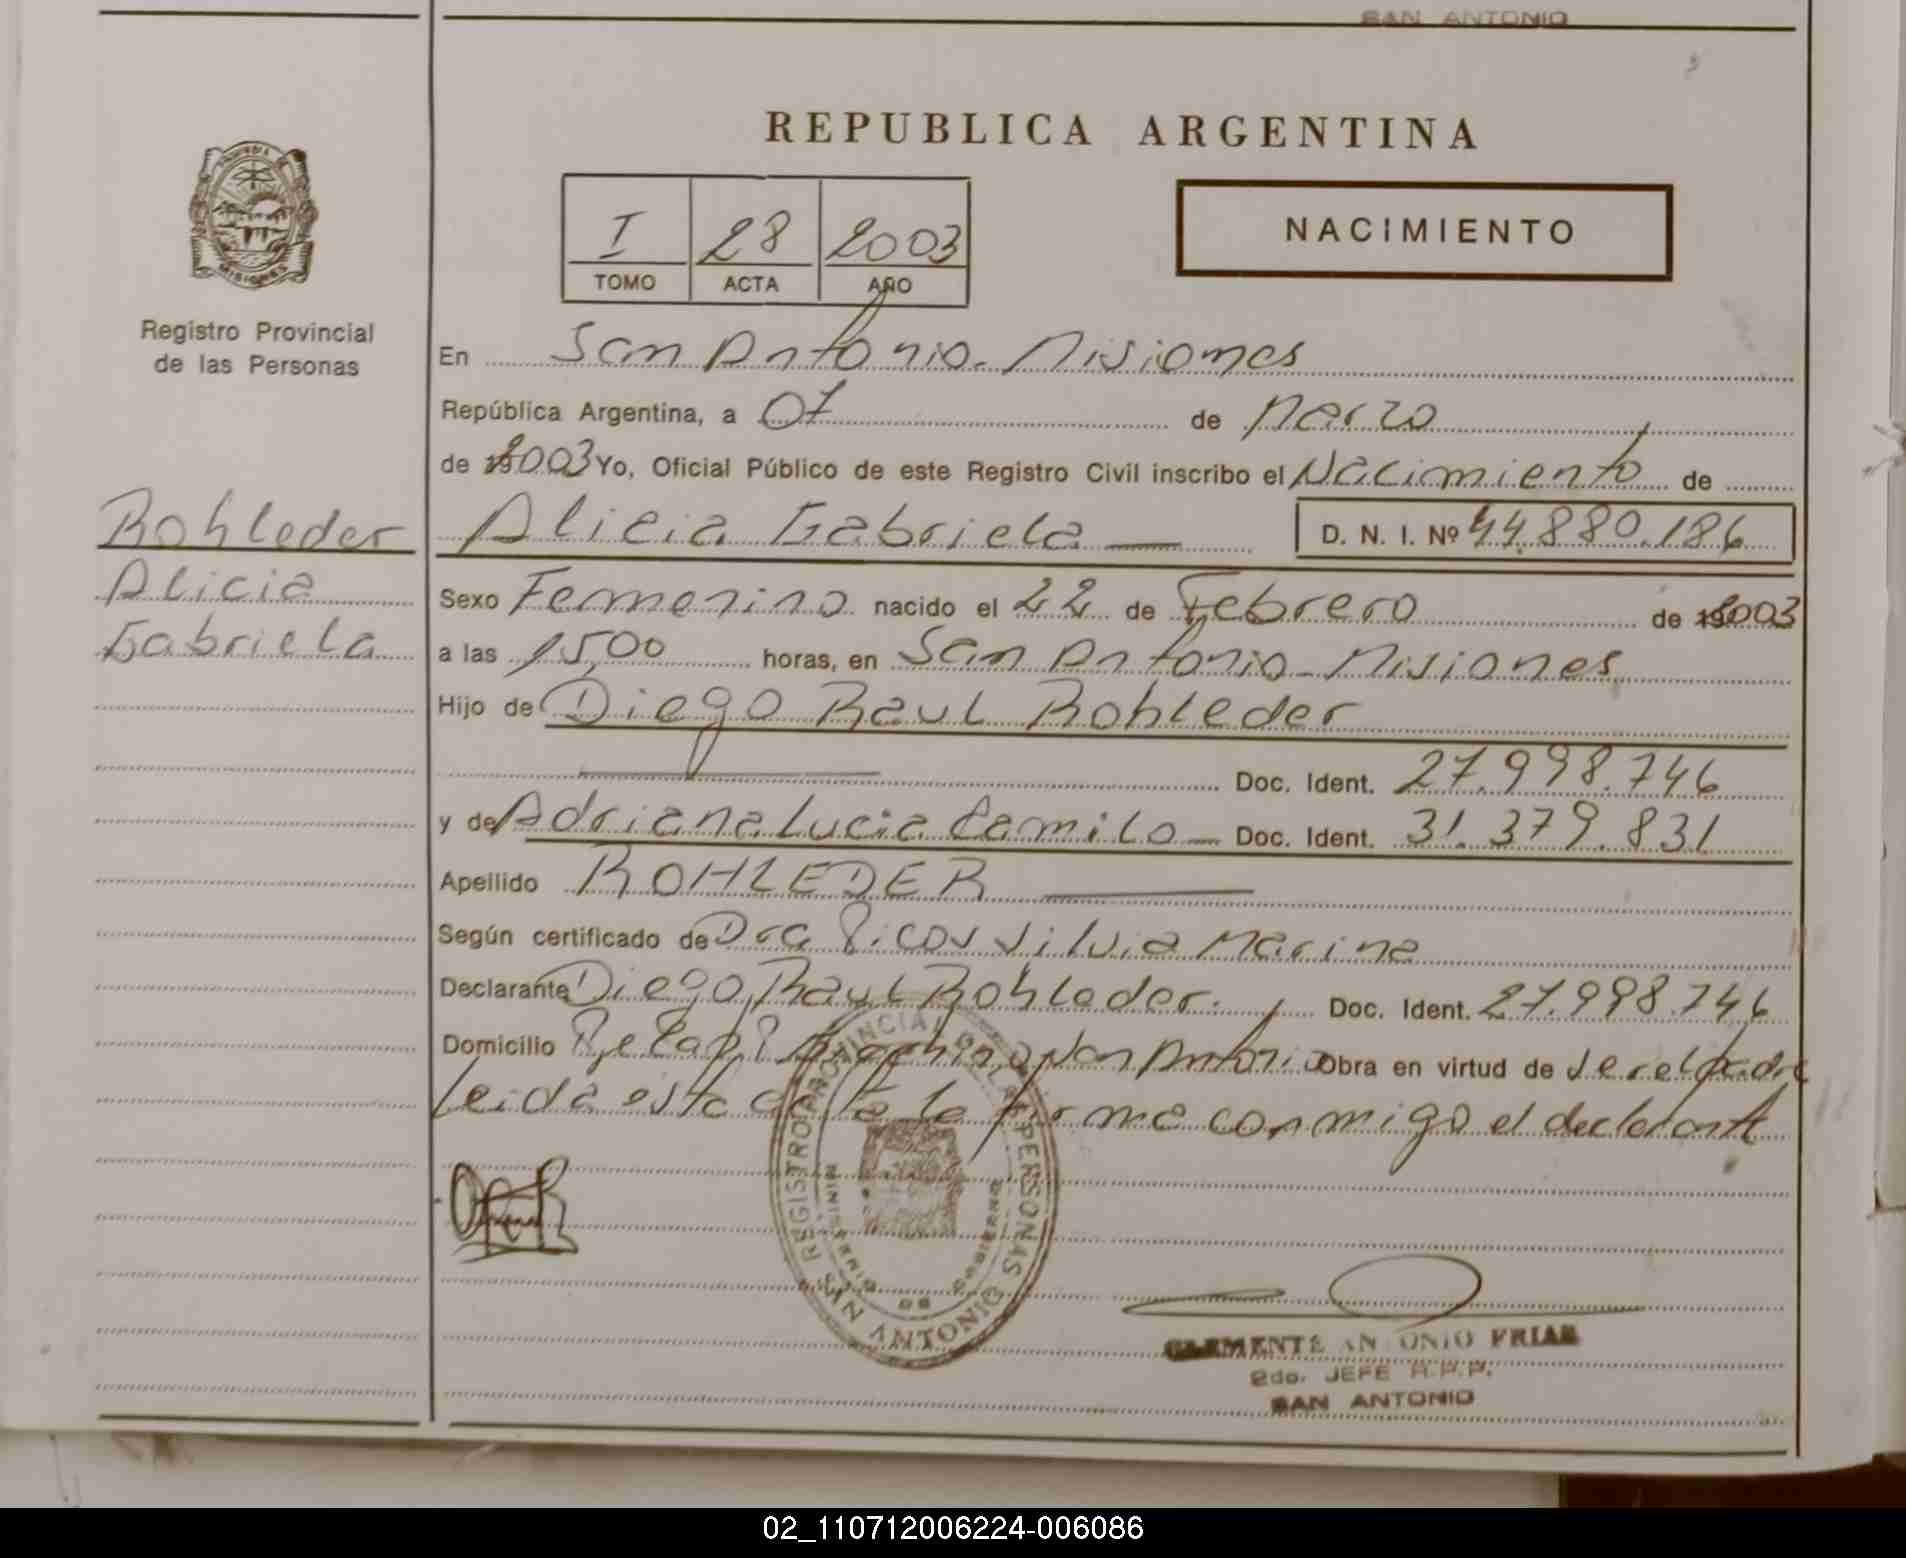 SAN ANTONIO
REPUBLICA ARGENTINA
NACIMIENTO
I 28 2003
TOMO ACTA AÑO
Registro Provincial
de las Personas
En San Antonio - Misiones
República Argentina, a 07 de Marzo
de 2003 Yo, Oficial Público de este Registro Civil inscribo el Nacimiento de
Rohleder
Alicia
Gabriela
Alicia Gabriela — D. N. I. Nº 44.880.186
Sexo Femenino nacido el 22 de Febrero de 2003
a las 15,00 horas, en San Antonio - Misiones
Hijo de Diego Raul Rohleder
Doc. Ident. 27.998.746
y de Adriana Lucia Camilo — Doc. Ident. 31.379.831
Apellido ROHLEDER
Según certificado de Dra Silvia Marina
Declarante Diego Raul Rohleder. Doc. Ident. 27.998.746
Domicilio San Antonio Obra en virtud de
leida esta acta la firma conmigo el declarante
REGISTRO PROVINCIAL DE LAS PERSONAS
MINISTERIO DE GOBIERNO
SAN ANTONIO
CLEMENTE ANTONIO FRIAS
2do. JEFE R.P.P.
SAN ANTONIO
02_110712006224-006086